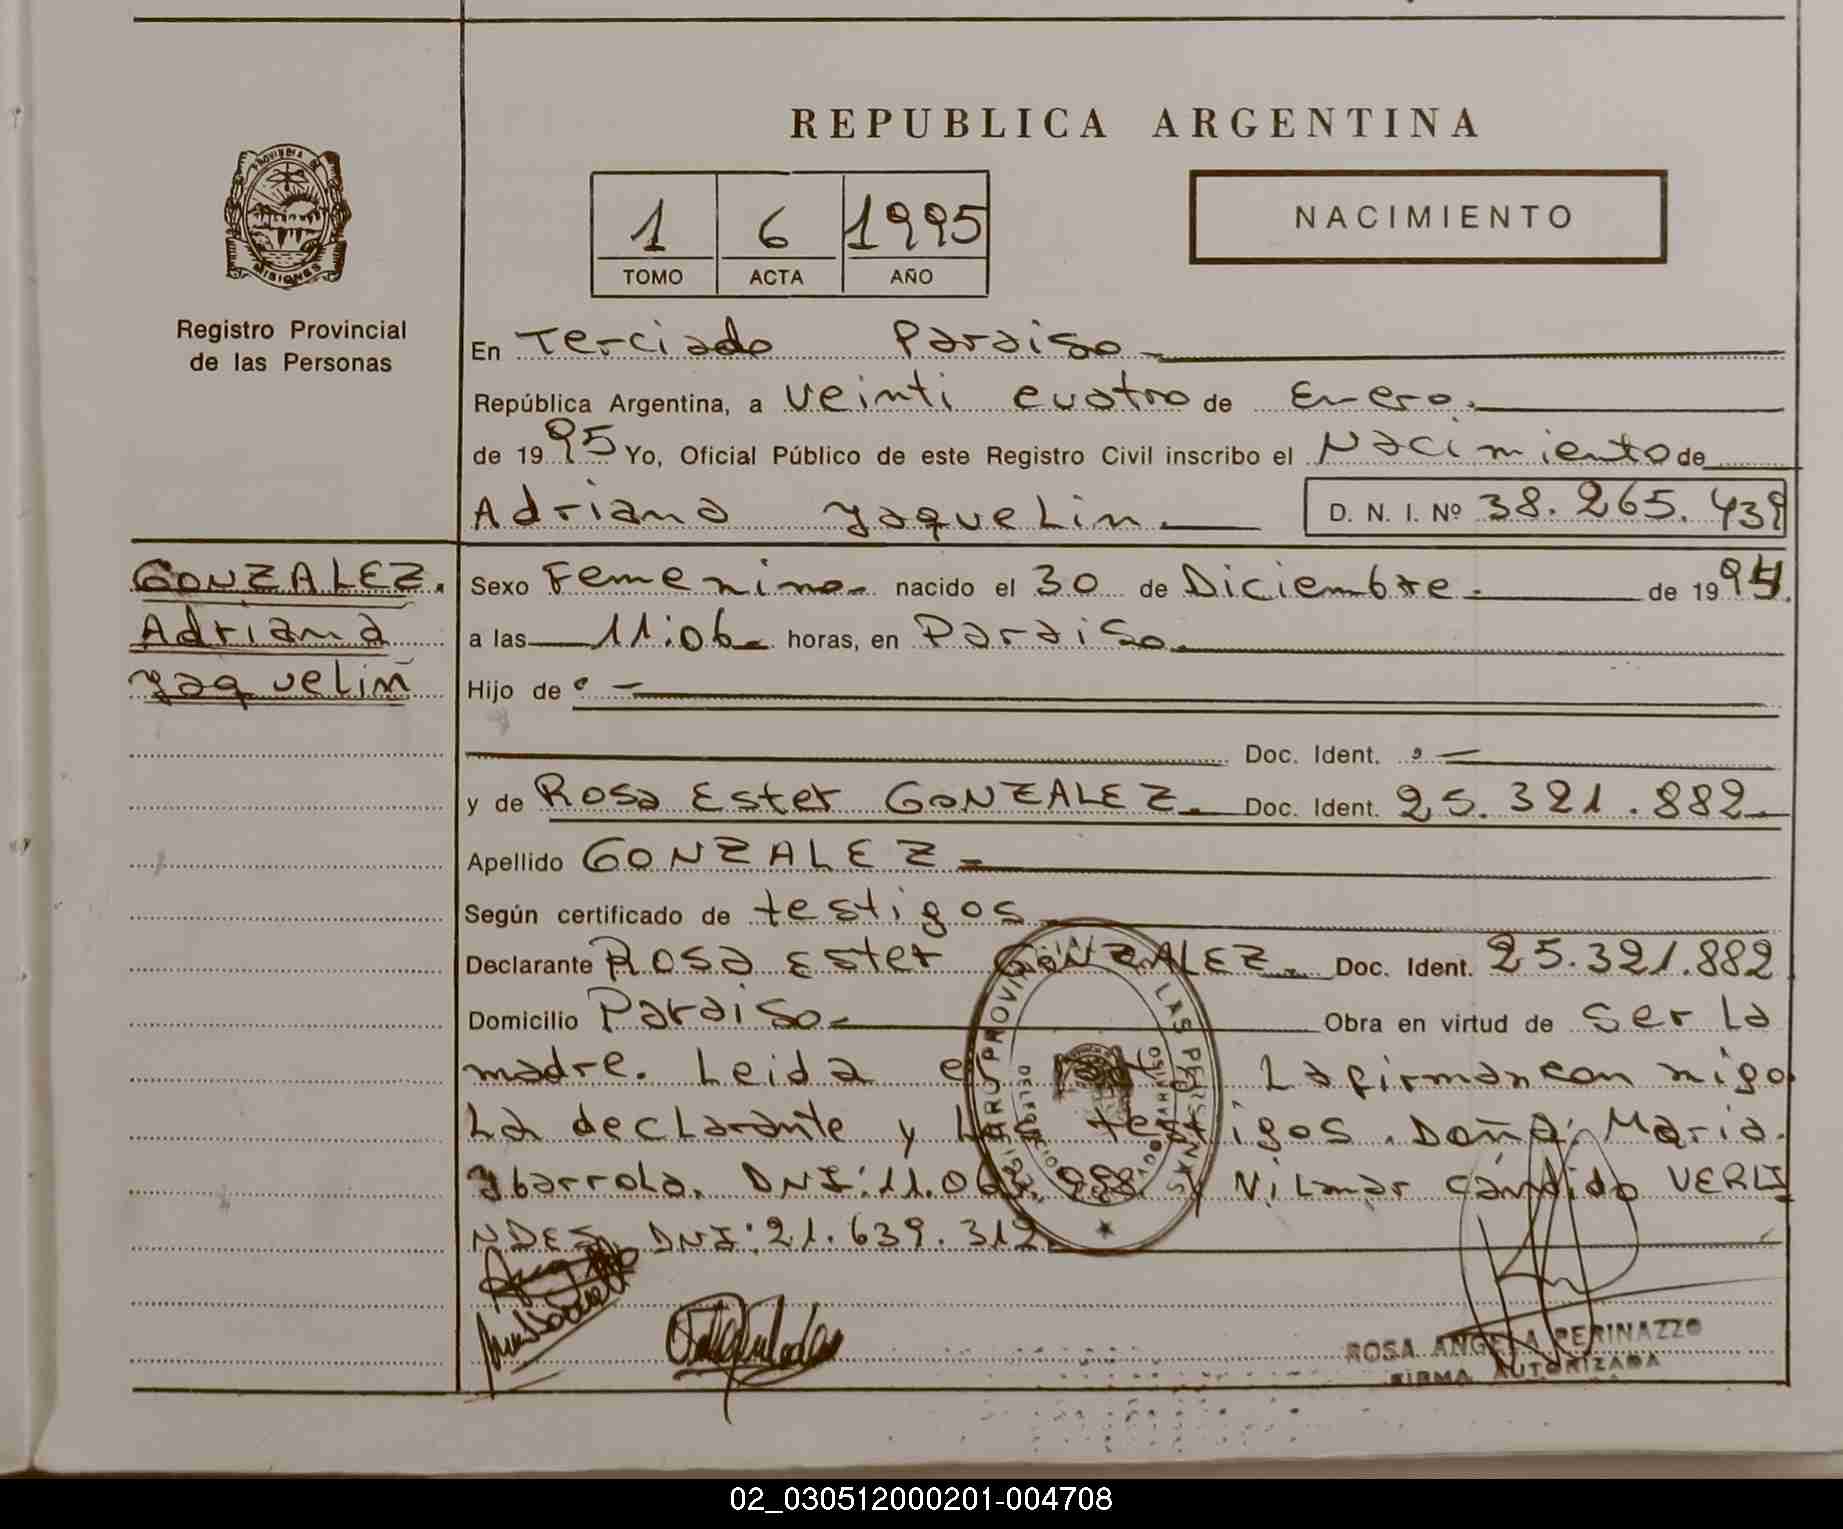 REPUBLICA ARGENTINA
PROVINCIA DE
MISIONES
Registro Provincial
de las Personas
1 6 1995
TOMO ACTA AÑO
NACIMIENTO
En Terciado Paraiso
República Argentina, a veinti cuatro de Enero.
de 1995 Yo, Oficial Público de este Registro Civil inscribo el Nacimiento de
Adriana Yaquelin. D. N. I. Nº 38.265.439
GONZALEZ.
Adriana
Yaqueliñ
Sexo Femenino nacido el 30 de Diciembre. de 1994.
a las 11:06 horas, en Paraiso.
Hijo de
Doc. Ident.
y de Rosa Ester GONZALEZ. Doc. Ident. 25.321.882
Apellido GONZALEZ
Según certificado de testigos
Declarante ROSA Ester GONZALEZ. Doc. Ident. 25.321.882
Domicilio Paraiso. Obra en virtud de ser la
madre. Leida el La firman con migo
La declarante y testigos. Doña: Maria.
Ybarrola. DNI: 11.0 988 y Nilmar cándido VERLI
NDES. DNI: 21.639.312
LAS PERSONAS
ROSA ANGELA PERINAZZO
FIRMA AUTORIZADA
02_030512000201-004708